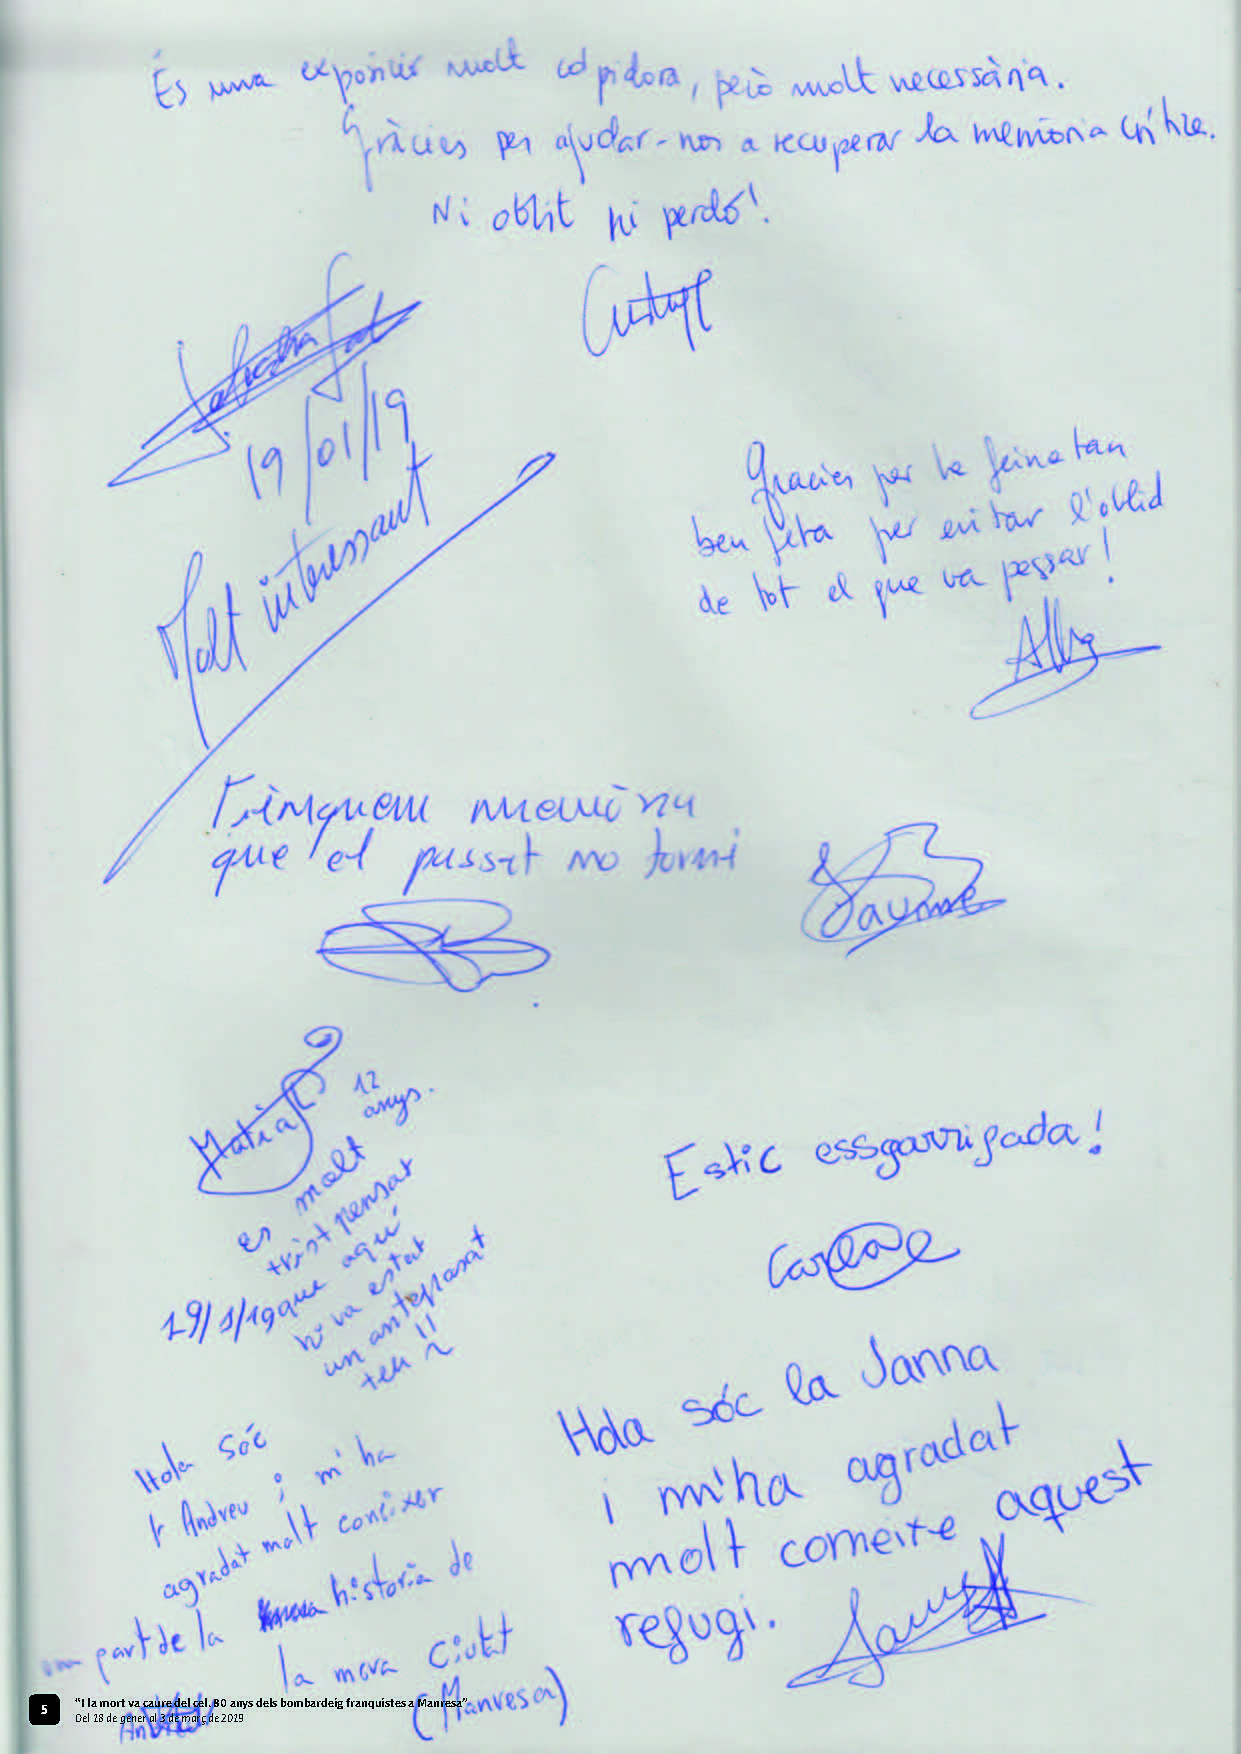 És una exposició molt colpidora, però molt necessària.
Gràcies per ajudar-nos a recuperar la memòria crítica.
Ni oblit ni perdó!
19/01/19
Molt interessant
Gracies per la feina tan
ben feta per evitar l'oblid
de tot el que va passar!
Alba
Tinguem memòria
que el passat no torni
Jaume
Matias 12
anys.
es molt
trist pensar
que aquí
hi va estar
un antepasat
teu
19/1/19
Estic essgarrifada!
Carme
Hola sóc la Janna
i m'ha agradat
molt coneixe aquest
refugi.
Hola sóc
l'Andreu i m'ha
agradat molt coneixer
una part de la historia de
la meva Ciutat
(Manresa)
5
"I la mort va caure del cel. 80 anys dels bombardeig franquistes a Manresa"
Del 18 de gener al 3 de març de 2019